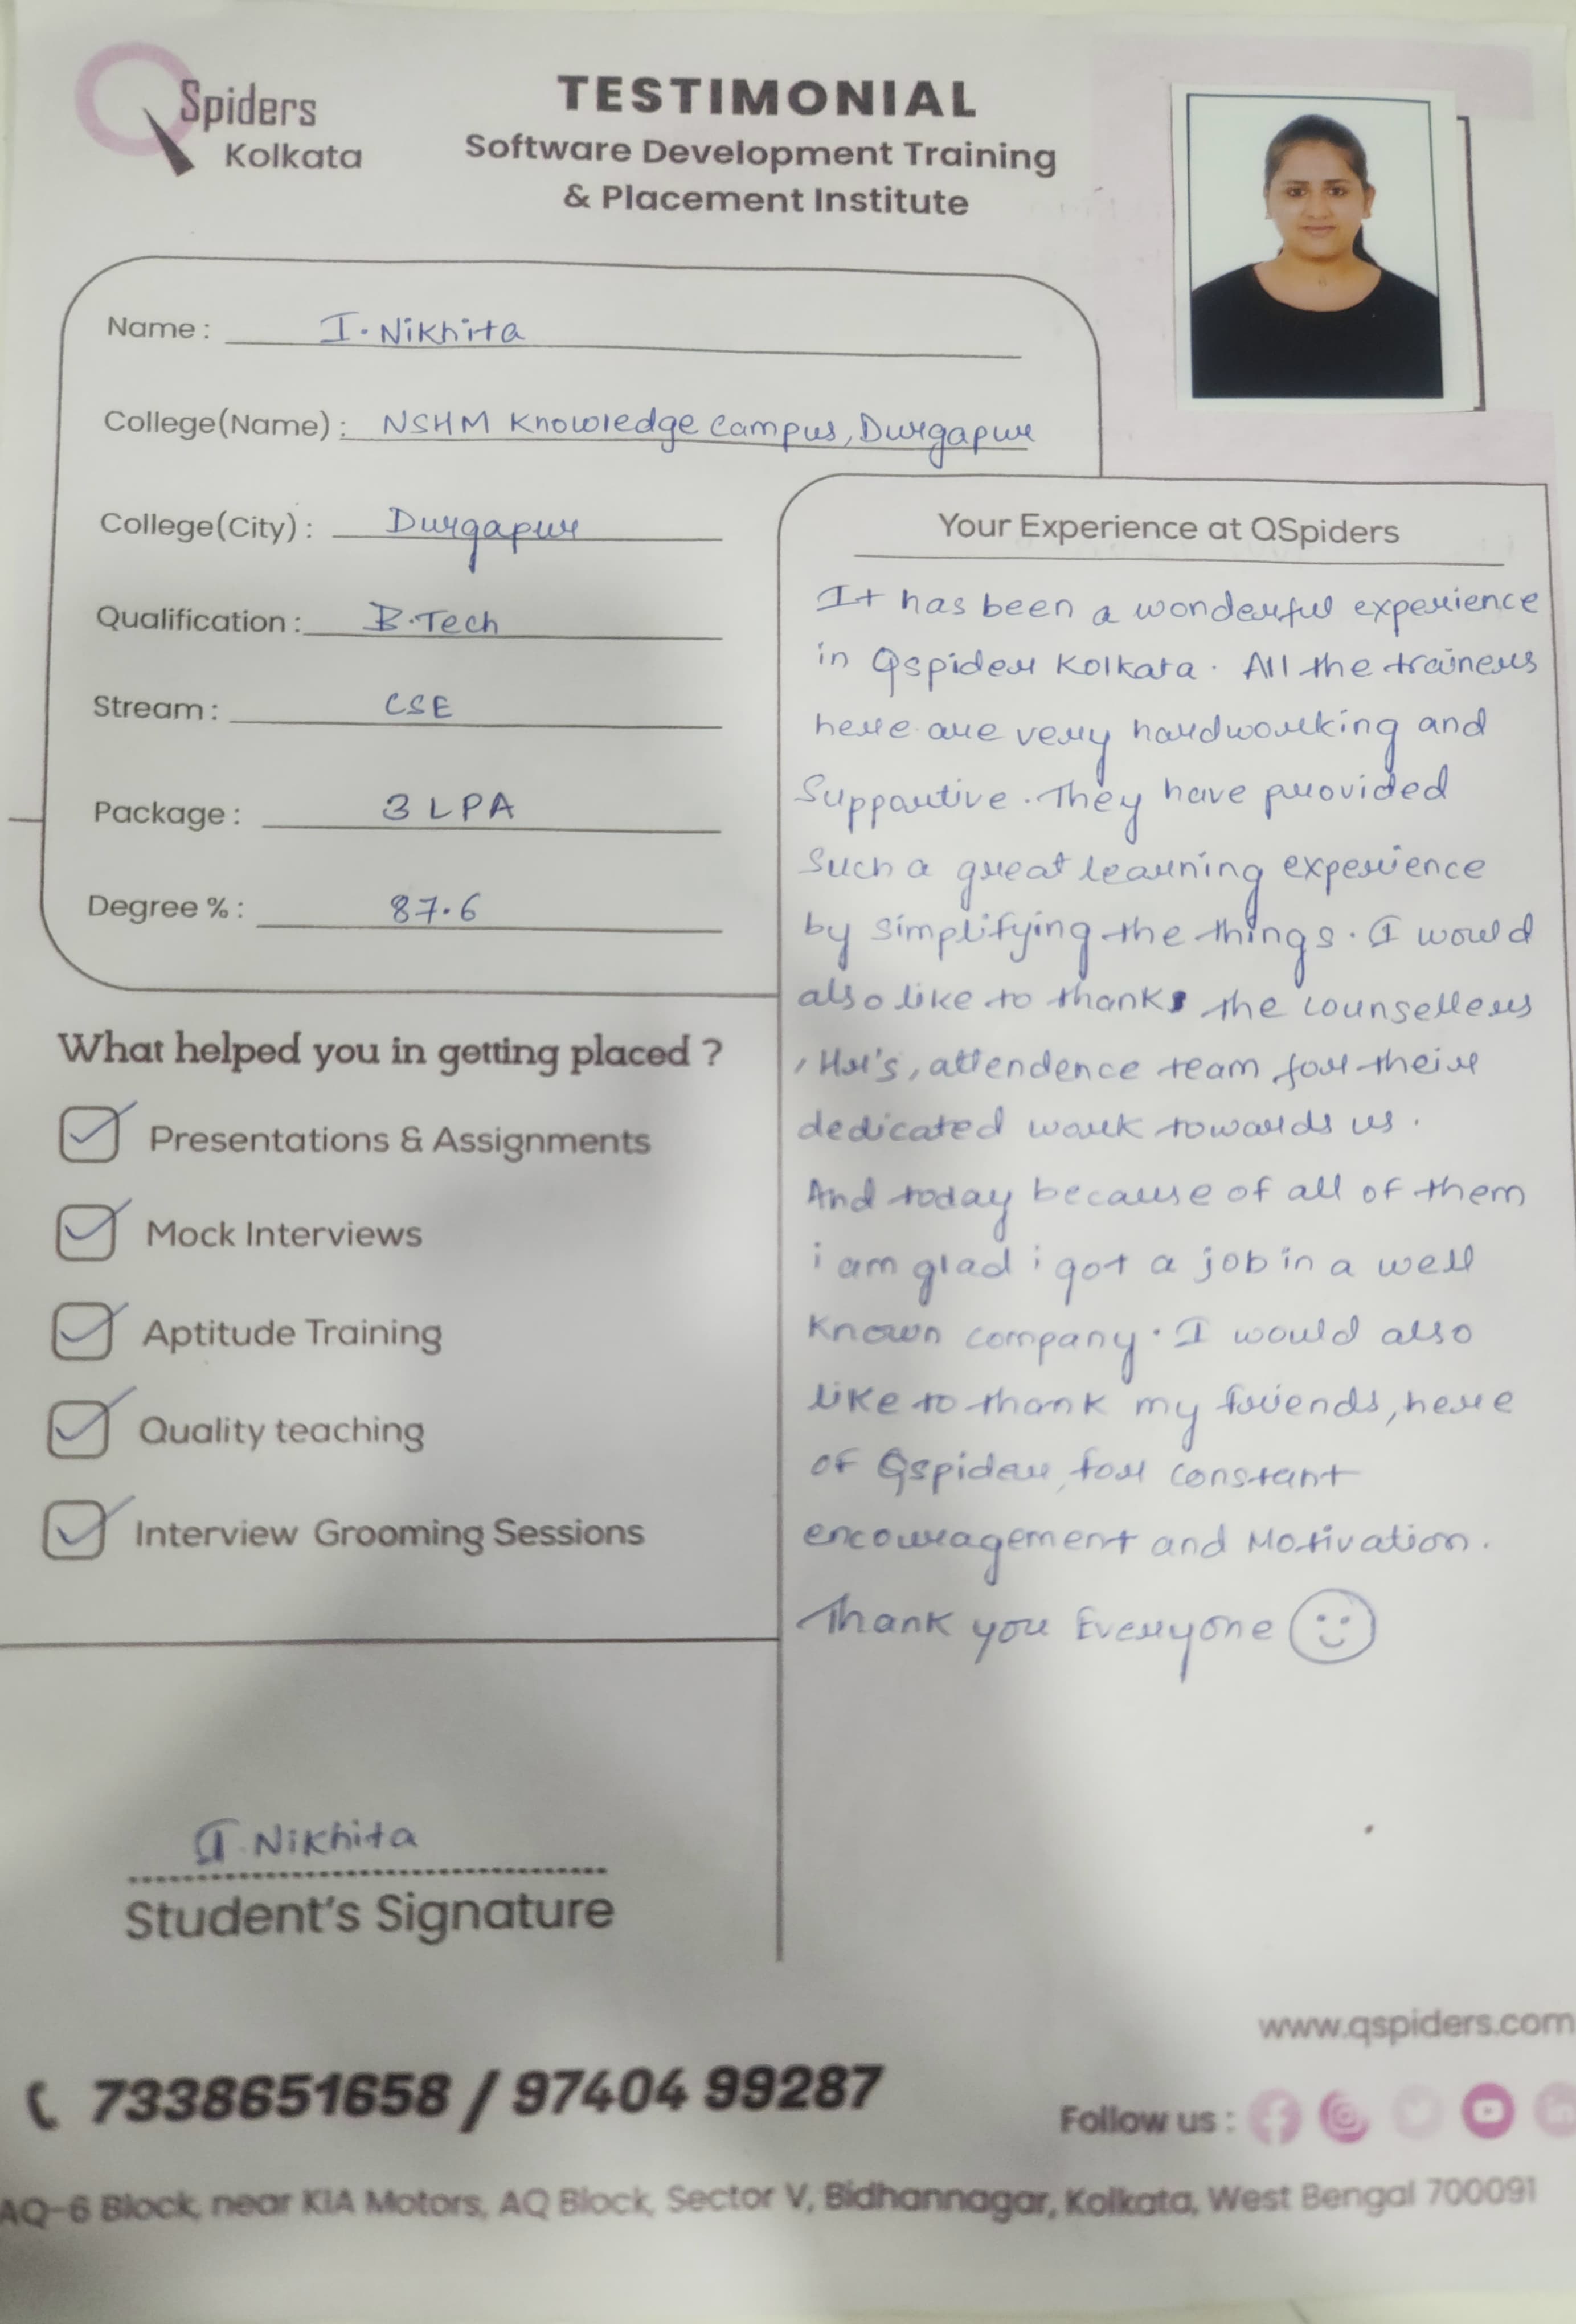 QSpiders
Kolkata
TESTIMONIAL
Software Development Training
& Placement Institute
Name : I. Nikhita
College(Name) : NSHM Knowledge Campus, Durgapur
College(City) : Durgapur
Qualification : B.Tech
Stream : CSE
Package : 3 LPA
Degree % : 87.6
What helped you in getting placed ?
Presentations & Assignments
Mock Interviews
Aptitude Training
Quality teaching
Interview Grooming Sessions
I. Nikhita
Student's Signature
Your Experience at QSpiders
It has been a wonderful experience
in Qspider Kolkata. All the trainers
here are very hardworking and
Supportive. They have provided
Such a great learning experience
by simplifying the things. I would
also like to thank the counsellers
, Hr's, attendence team for their
dedicated work towards us.
And today because of all of them
i am glad i got a job in a well
Known company. I would also
like to thank my friends, here
of Qspider, for constant
encouragement and Motivation.
Thank you Everyone
www.qspiders.com
7338651658 / 97404 99287
Follow us :
AQ-6 Block, near KIA Motors, AQ Block, Sector V, Bidhannagar, Kolkata, West Bengal 700091